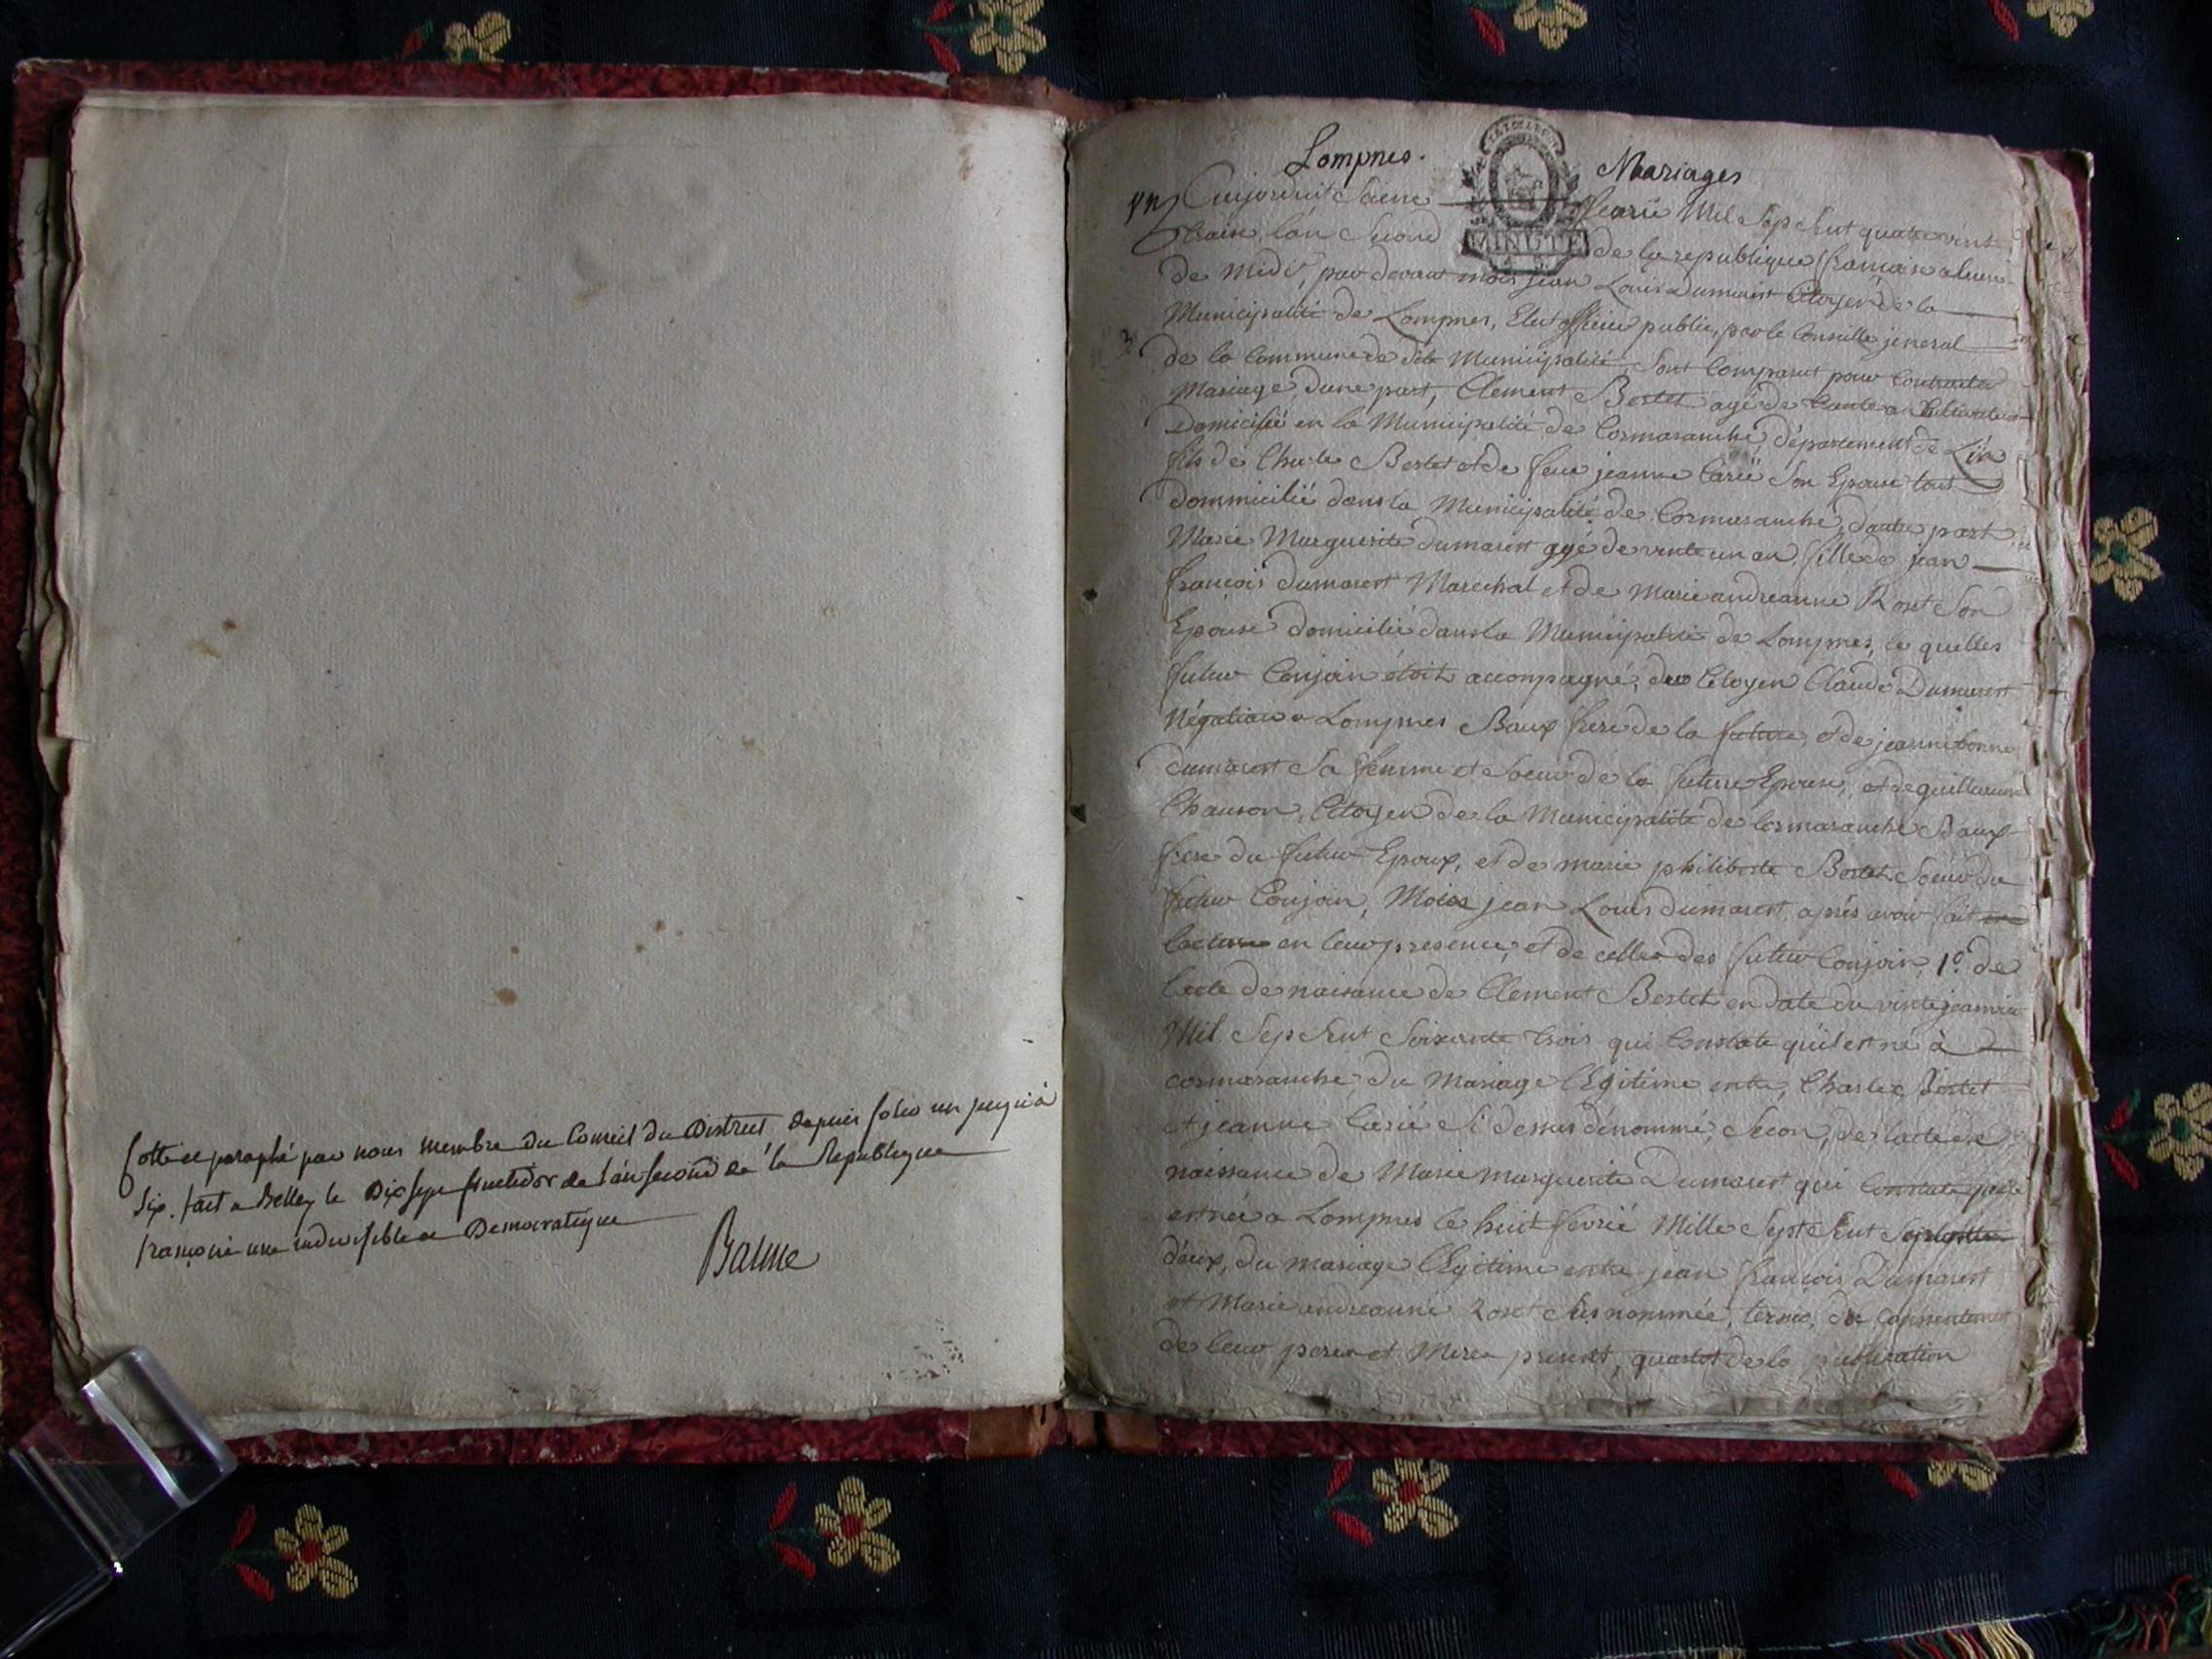 Cotté et paraphé par nous membre du Conseil du District depuis folio un jusqu'à
Six. fait a Belley le Dix sept fructidor de l'an second de la Republique
françoise une indivisible et Democratique
Balme
Lompnes.
Mariages
MINUTE
un
Aujorduit Saeire fevrié Mil Sep Sent quatre vint
traise, lan Second de la republique francaise a leure
de midÿ, par devant mois jean Louis dumarest Citoyen de la
Municipalité de Lompnes, Elut officie public, par le Conseille jeneral
de la Commune de dite Municipalité, Sont Comparut pour Contracter
Mariage, dune part, Clement Bertet agé de trante a Cultivateur
Domicilié en la Municipalité de Cormaranche, département de L'in
fils de Charle Bertet et de feue jeanne Carié Son Epouse tout
dommicilié dans la Municipalité de Cormaranche, dautre part
Marie Marguerite dumarest agé de vinte un an, fille de jean
françois dumarest Marechal et de Marie andreanne Roset Son
Epouse domicilié dans la Municipalité de Lompnes, le quelles
futur Conjoin étoit acconpagné, du Citoyen Claude Dumarest
Négotian a Lompnes Baux frere de la future, et de jeanne bonne
dumarest Sa femme et Soeur de la future Epouse, et de guillaume
Chauson, Citoyen de la Municipalité de Cormaranche Baux
frere du futur Epoux, et de marie philiberte Bertet Soeur du
futur Conjoin, Mois jean Louis dumarest, après avoir fait
lecture en leur presence, et de celles des futur Conjoin, 1º. de
lacte de naisance de Clement Bertet en date du vinte jeanvié
Mil Sep Sent Soixante trois qui Constate quil est né à
cormaranche, du Mariage lEgitime entre, Charles Bertet
et jeanne Carié Si dessus dénommé, Secon, de lacte de
naissance de Marie marguerite Dumarest qui Constate quele
est née a Lompnes le huit fevrié Mille Sept Sent Septente
deux, du mariage lEgitime entre jean françois Dumarest
et Marie andreanne Roset Sus nommée, terno, du Consentement
de leur peres et Meres present, quartot de la publication